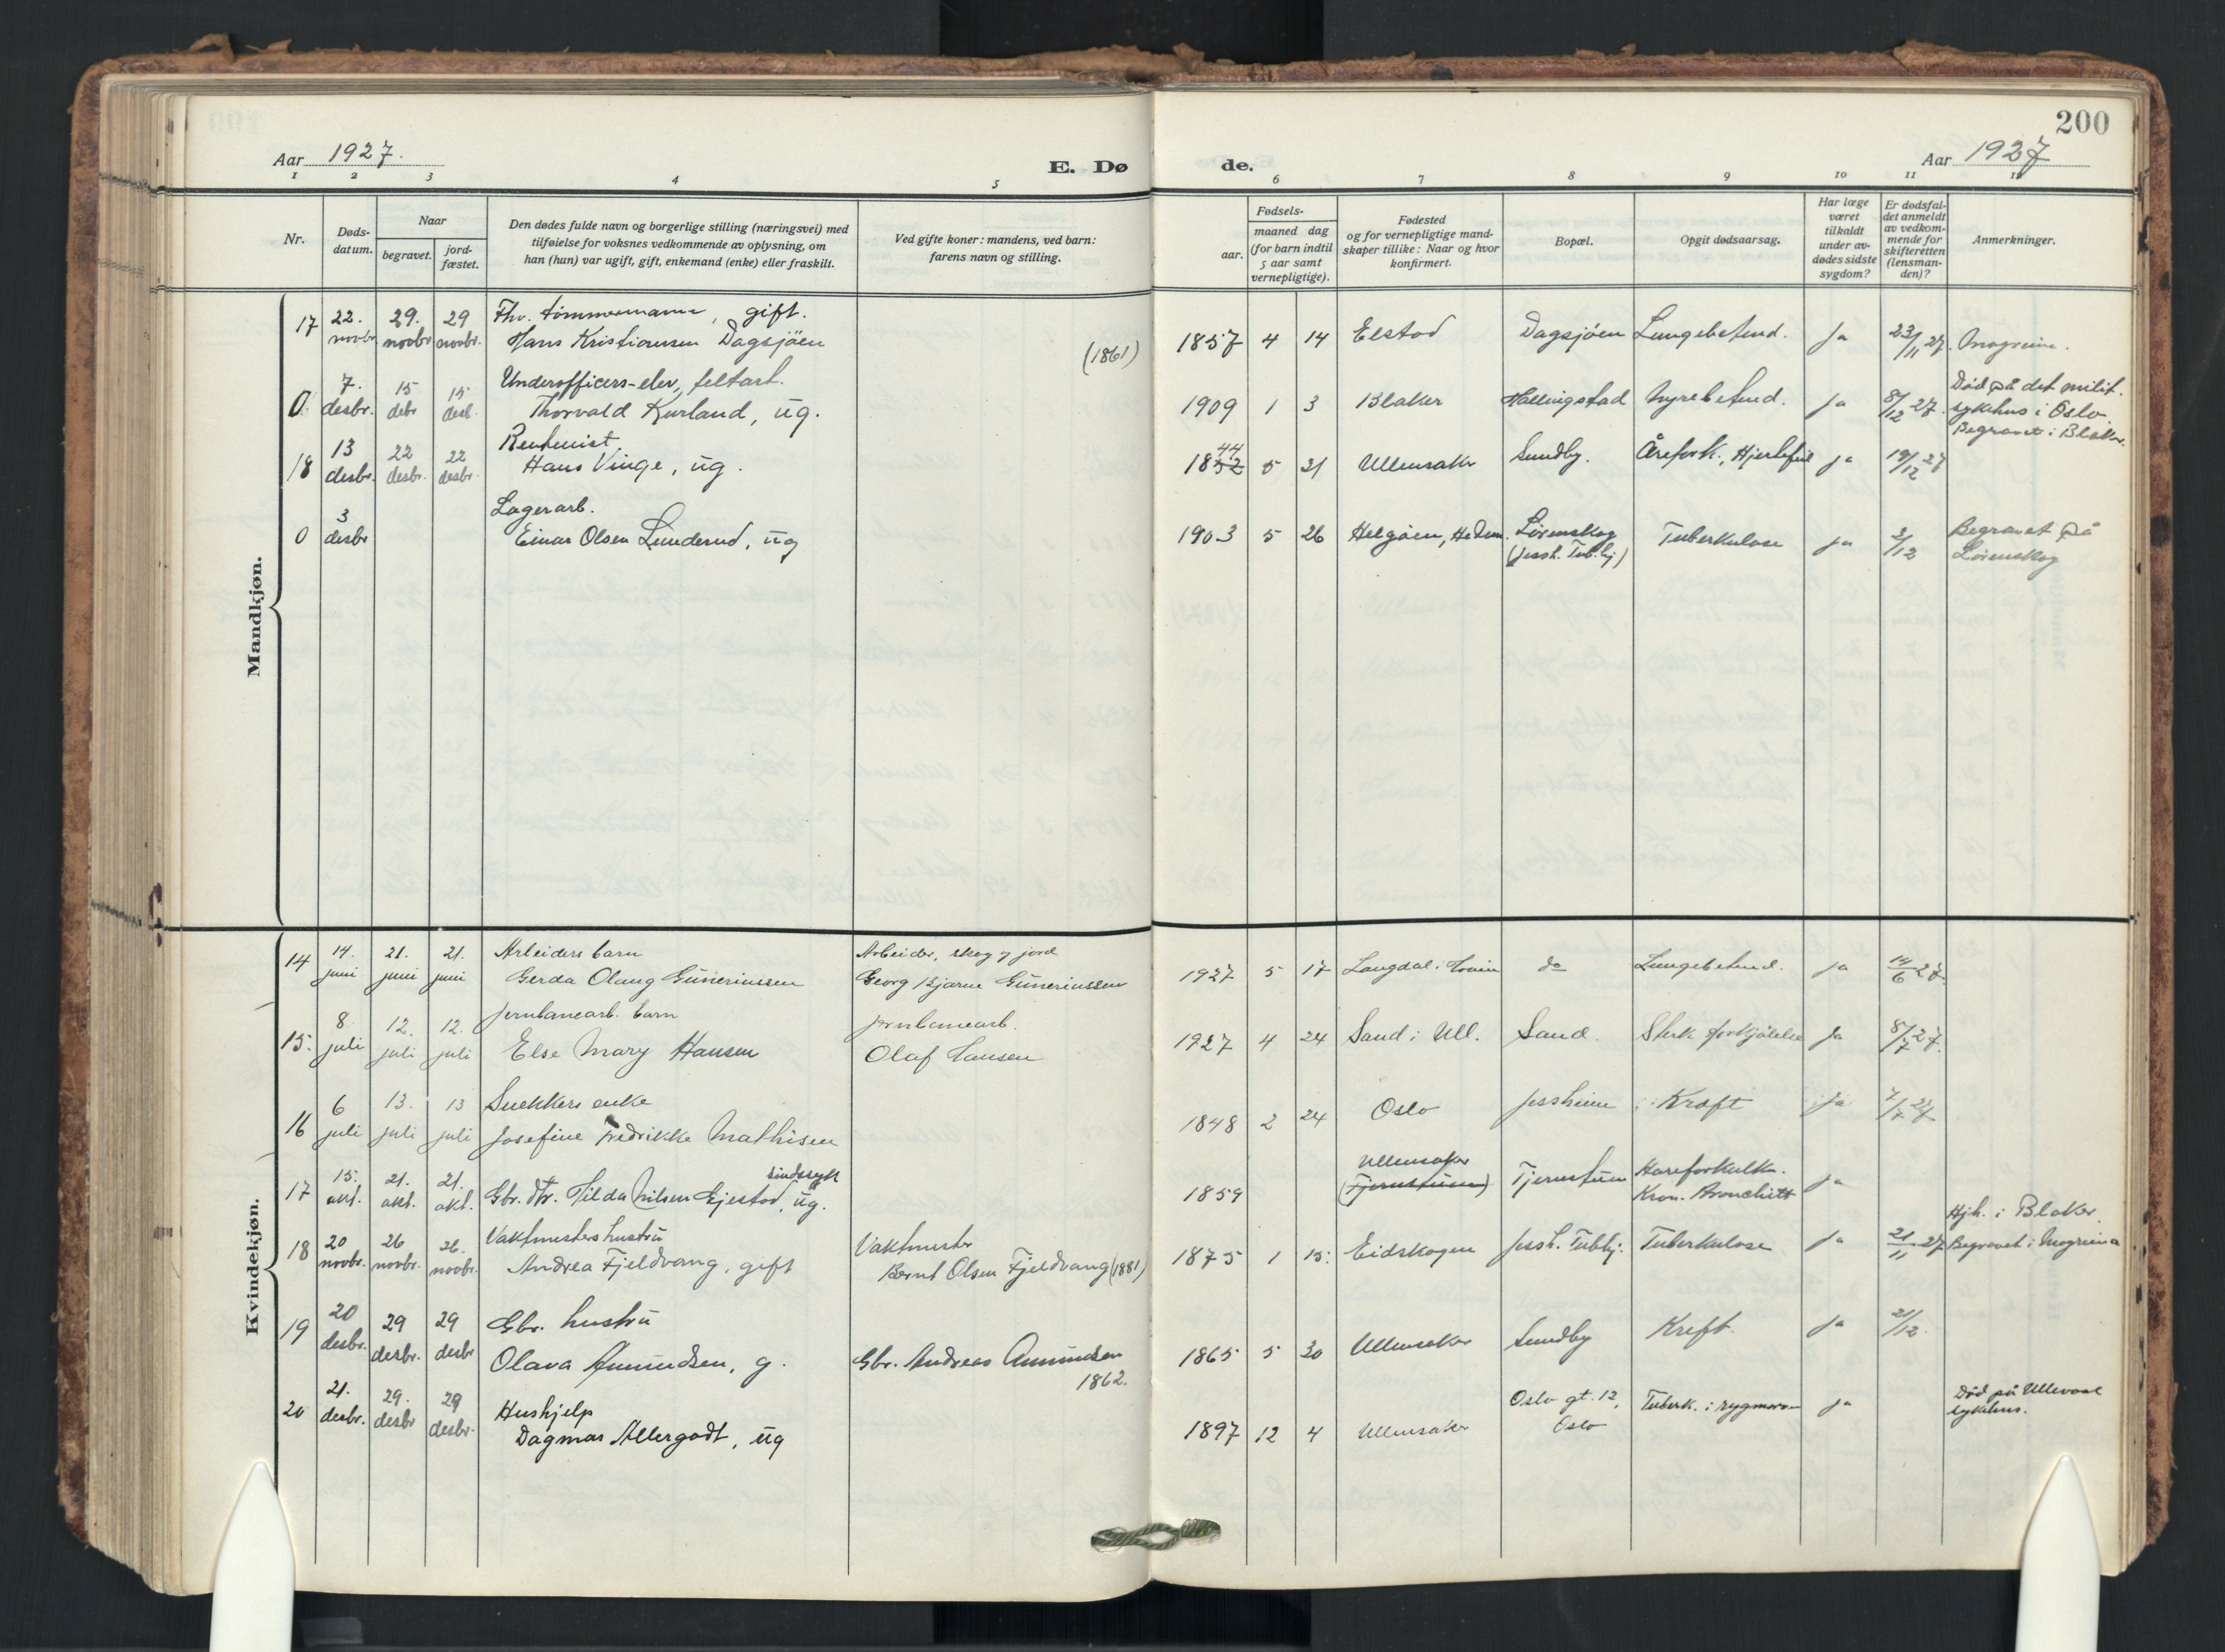 200
Aar 1927.
E. Dø
de.
Aar 1927
1 2 3 4 5 6 7 8 9 10 11 12
Nr.
Døds-
datum.
Naar
begravet.
jord-
fæstet.
Den dødes fulde navn og borgerlige stilling (næringsvei) med
tilføielse for voksnes vedkommende av oplysning, om
han (hun) var ugift, gift, enkemand (enke) eller fraskilt.
Ved gifte koner: mandens, ved barn:
farens navn og stilling.
Fødsels-
aar.
maaned dag
(for barn indtil
5 aar samt
vernepligtige).
Fødested
og for vernepligtige mand-
skaper tillike: Naar og hvor
konfirmert.
Bopæl.
Opgit dødsaarsag.
Har læge
været
tilkaldt
under av-
dødes sidste
sygdom?
Er dødsfal-
det anmeldt
av vedkom-
mende for
skifteretten
(lensman-
den)?
Anmerkninger.
Mandkjøn.
17 22. novbr. 29. novbr 29 novbr. Fhv. tømmermann, gift.
Hans Kristiansen Dagsjöen (1861) 1857 4 14 Elstad Dagsjöen Lungebetend. Ja 23/11 27. Mogreina.
0 7. desbr. 15 debr 15 desb. Underofficers-elev, feltart.
Thorvald Kurland, ug. 1909 1 3 Blaker Hallingstad Nyrebetend. Ja 8/12 27. Död på det milit.
sykehus i Oslo.
Begravet i Blaker.
18 13 desbr. 22 desbr. 22 desbr. Rentenist
Hans Vinge, ug. 1852 44 5 21 Ullensaker Sundby. Årefork., Hjertefeil ja 19/12 27
0 3 desbr Lagerarb.
Einar Olsen Lunderud, ug 1903 5 26 Helgöen, Hedm. Lörenskog
(Jessh. Tub.hj) Tuberkulose ja 3/12 Begravet på
Lörenskog
Kvindekjøn.
14 14. juni 21. juni 21. juni Arbeiders barn
Gerda Olaug Guneriussen Arbeider, skog og jord
Georg Bjarne Guneriussen 1927 5 17 Langdal i Hovin do Lungebetend. ja 14/6 27.
15. 8. juli 12. juli 12. juli Jernbanearb. barn
Else Mary Hansen Jernbanearb.
Olaf Hansen 1927 4 24 Sand i Ull. Sand. Sterk forkjölelse Ja 8/7 27.
16 6 juli 13. juli 13 juli Snekkers enke
Josefine Fredrikke Mathisen 1848 2 24 Oslo Jessheim Kræft ja 7/7 27
17 15. okt. 21. okt. 21. okt. sindssyk
Gbr. dtr. Hilda Nilsen Gjestad, ug. 1859 Ullensaker
(Tjernstuen) Tjernstuen Åreforkalkn.
Kron. Bronchitt ja
18 20 novbr. 26 novbr. 26. novbr. Vaktmesters hustru
Andrea Fjeldvang, gift Vaktmester
Bernt Olsen Fjeldvang (1881) 1875 1 15. Eidskogen Jessh. Tubhj. Tuberkulose Ja 21/11 27 Hjh. i Blaker.
Begravet i Mogreina
19 20 desbr. 29 desbr. 29 desbr Gbr. hustru
Olava Amundsen, g. Gbr. Andreas Amundsen
1862. 1865 5 30 Ullensaker Sundby Kreft. Ja 21/12
20 21. desbr. 29. desbr 29 desbr. Hushjelp
Dagmar Allergodt, ug 1897 12 4 Ullensaker Oslo gt. 12,
Oslo Tuberk. i rygmarv ja Död på Ullevaal
sykehus.